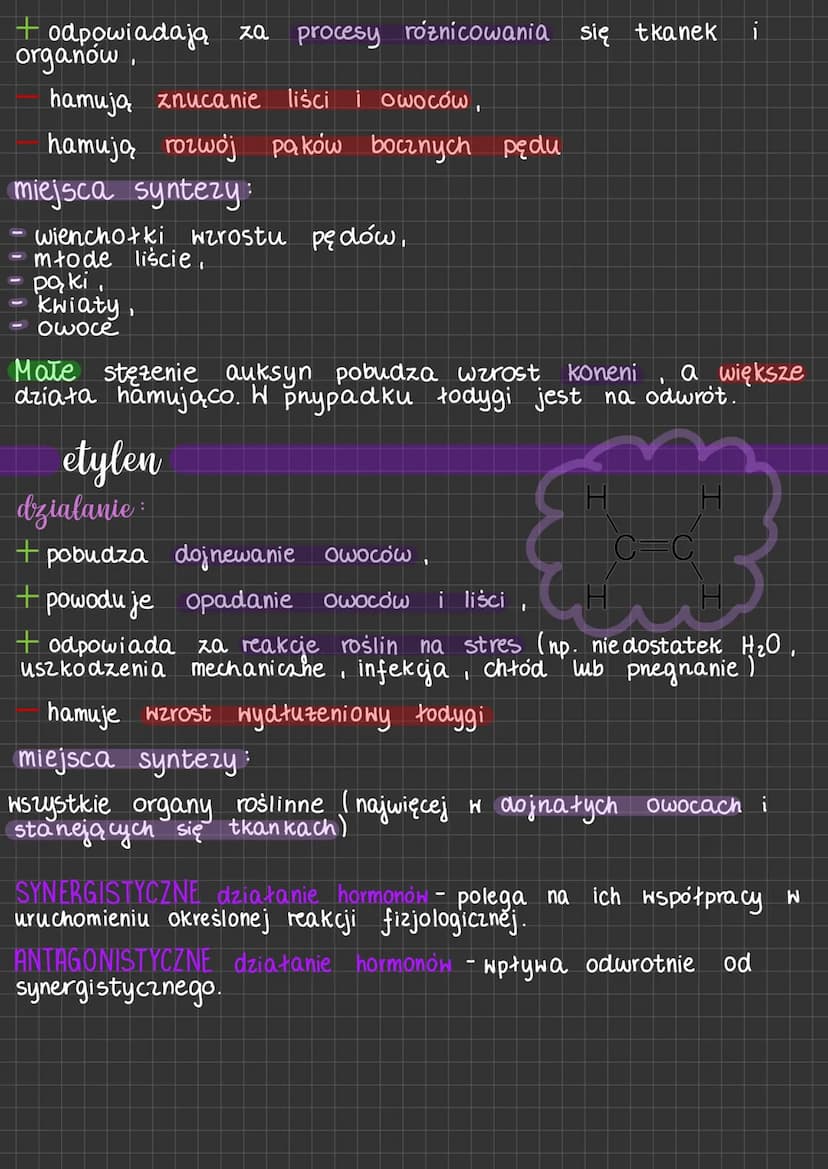 + odpowiadają za procesy różnicowania się tkanek i
organów,
- hamują zrzucanie liści i owoców,
- hamują rozwój pąków bocznych pędu
miejsca syntezy:
- wierzchołki wzrostu pędów,
- młode liście,
- pąki,
- kwiaty,
- owoce
Małe stężenie auksyn pobudza wzrost korzeni, a większe
działa hamująco. W przypadku łodygi jest na odwrót.
etylen
działanie:
H H
C=C
H H
+ pobudza dojrzewanie owoców,
+ powoduje opadanie owoców i liści,
+ odpowiada za reakcje roślin na stres (np. niedostatek H₂O,
uszkodzenia mechaniczne, infekcja, chłód lub przegrzanie)
- hamuje wzrost wydłużeniowy łodygi
miejsca syntezy:
wszystkie organy roślinne (najwięcej w dojrzałych owocach i
starzejących się tkankach)
SYNERGISTYCZNE działanie hormonów - polega na ich współpracy w
uruchomieniu określonej reakcji fizjologicznej.
ANTAGONISTYCZNE działanie hormonów - wpływa odwrotnie od
synergistycznego.